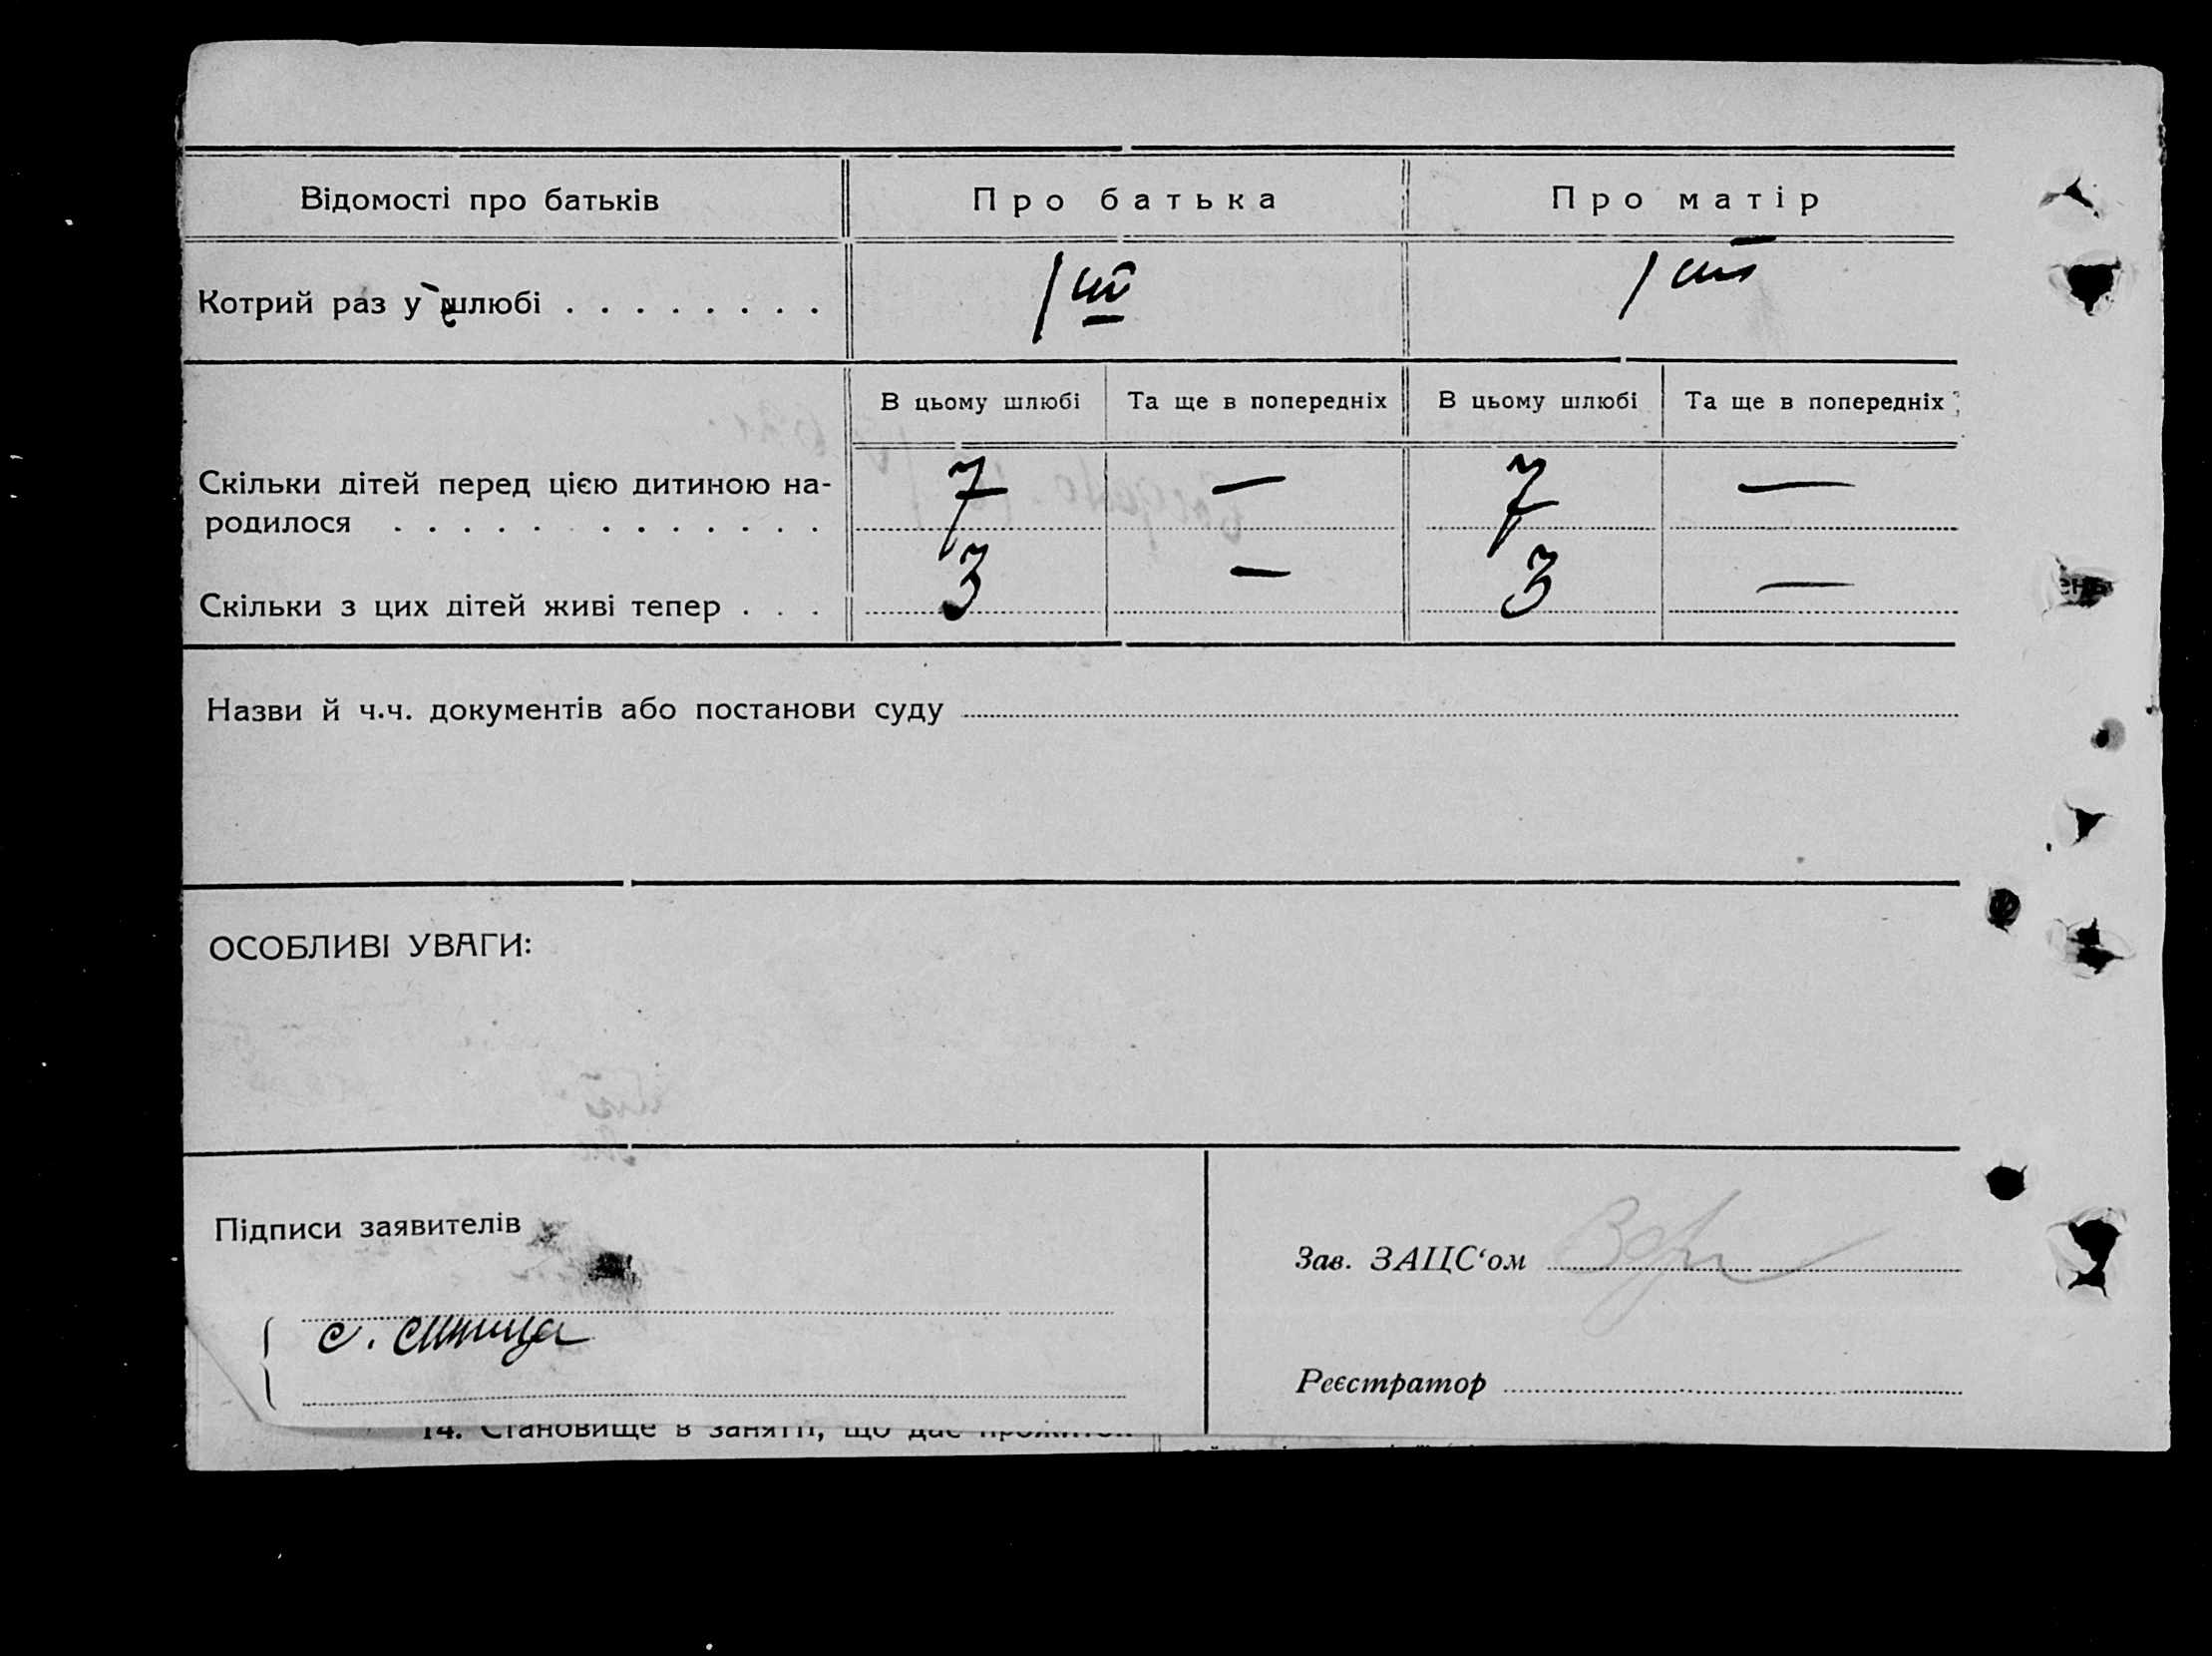 Відомості про батьків
Про батька
Про матір
Котрий раз у шлюбі . . . . . . . .
1ий
1ий
В цьому шлюбі
Та ще в попередніх
В цьому шлюбі
Та ще в попередніх
Скільки дітей перед цією дитиною на-
родилося . . . . . . . . . . . . .
7
—
7
—
Скільки з цих дітей живі тепер . . .
3
—
3
—
Назви й ч.ч. документів або постанови суду
ОСОБЛИВІ УВАГИ:
Підписи заявителів
с. синица
Зав. ЗАЦС‘ом
Реєстратор
14. Становище в занятті, що дає